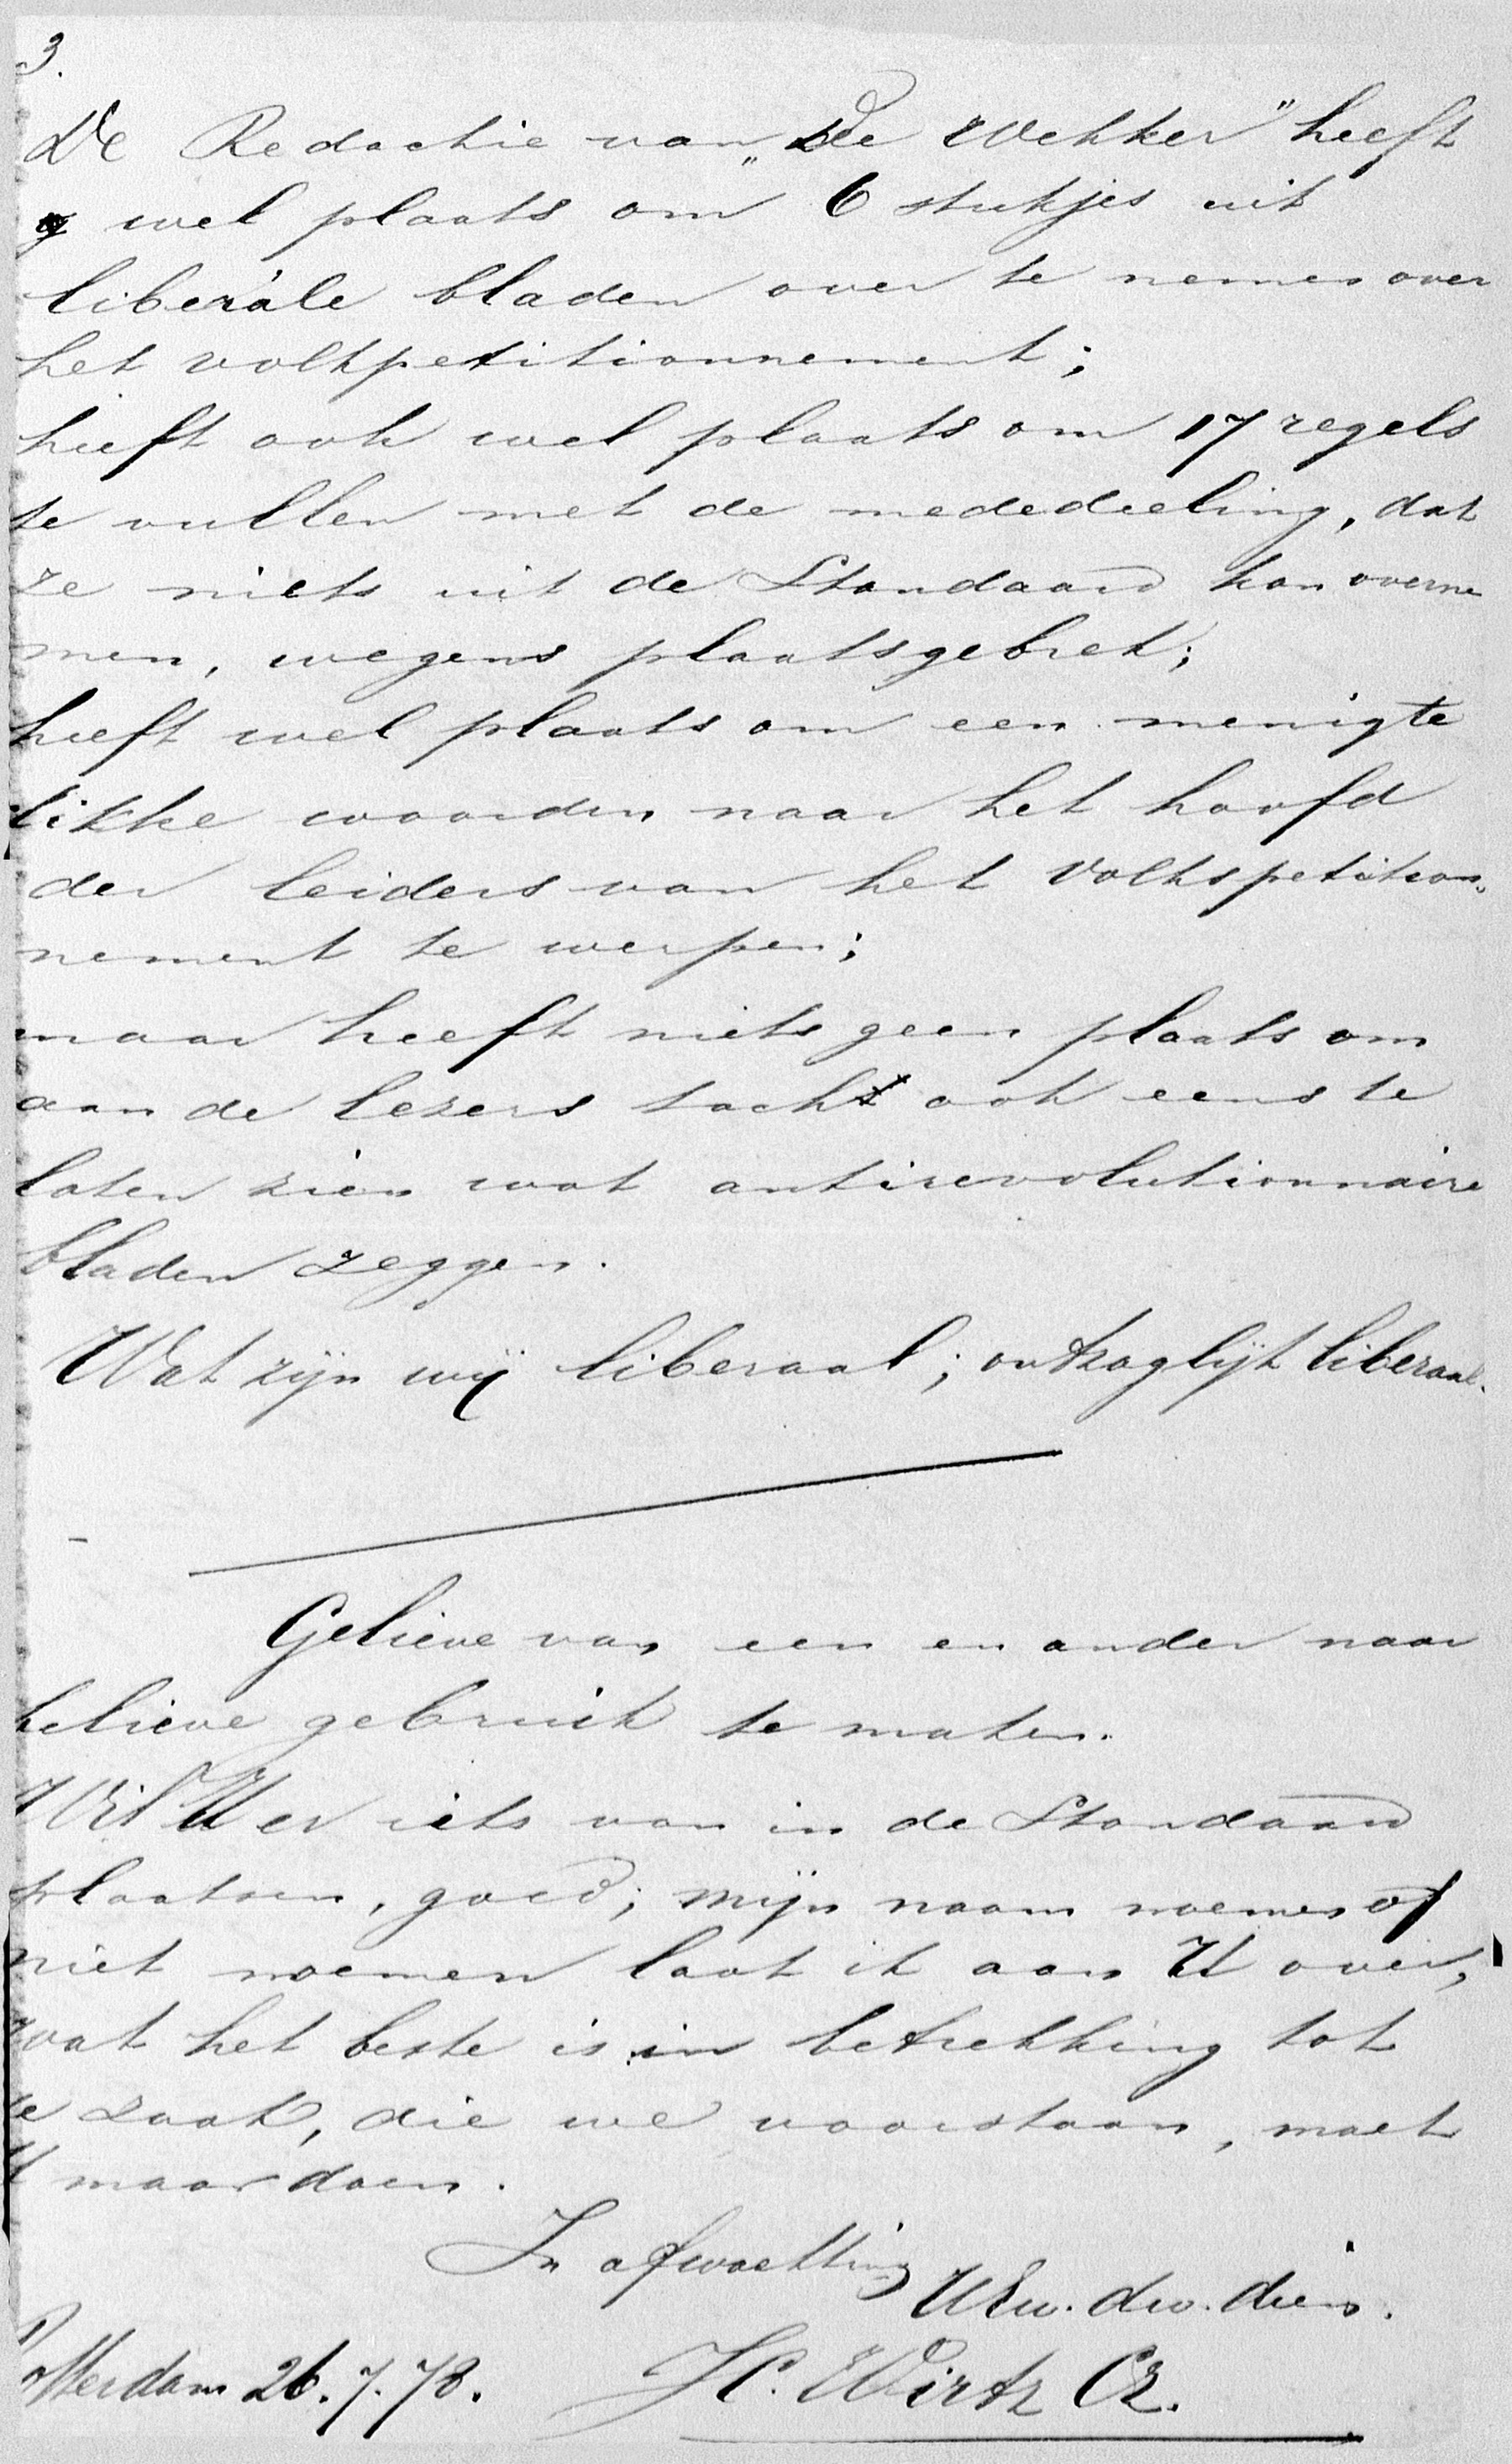 3.
De Redactie van „De Wekker" heeft
wel plaats om 6 stukjes uit
liberale bladen over te nemen over
het volkpetitionnement;
heeft ook wel plaats om 17 regels
te vullen met de mededeeling, dat
ze niets uit de Standaard kan overne
men, wegens plaatsgebrek;
heeft wel plaats om een menigte
dikke woorden naar het hoofd
der leiders van het Volkspetition-
nement te werpen;
maar heeft niets geen plaats om
aan de lezers toch ook eens te
laten zien wat antirevolutionnaire
bladen zeggen.
Wat zijn wij liberaal; ontzaglijk liberaal.
Gelieve van een en ander naar
believe gebruik te maken.
Wil U er iets van in de Standaard
plaatsen, goed; mijn naam noemen of
niet noemen laat ik aan U over,
wat het beste is in betrekking tot
de zaak, die we voorstaan, moet
U maar doen.
In afwachting
UEw. dw. dien.
Rotterdam 26.7.78. H. Wirtz Cz.